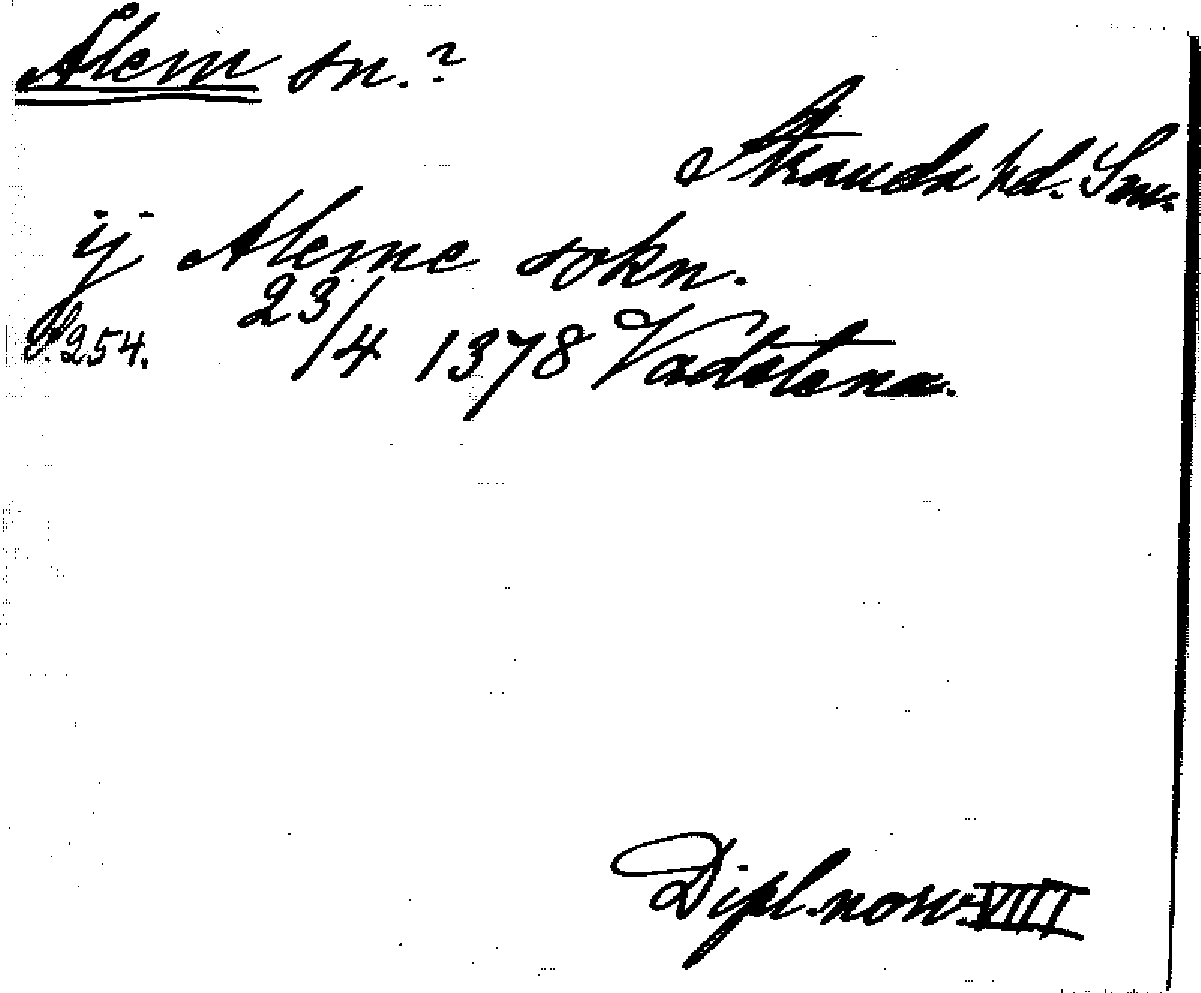 Ålem sn.?
Stranda hd. Sm.
ij Aleme sokn.
S. 254. 23/4 1378 Vadstena.
Dipl. norv. VIII